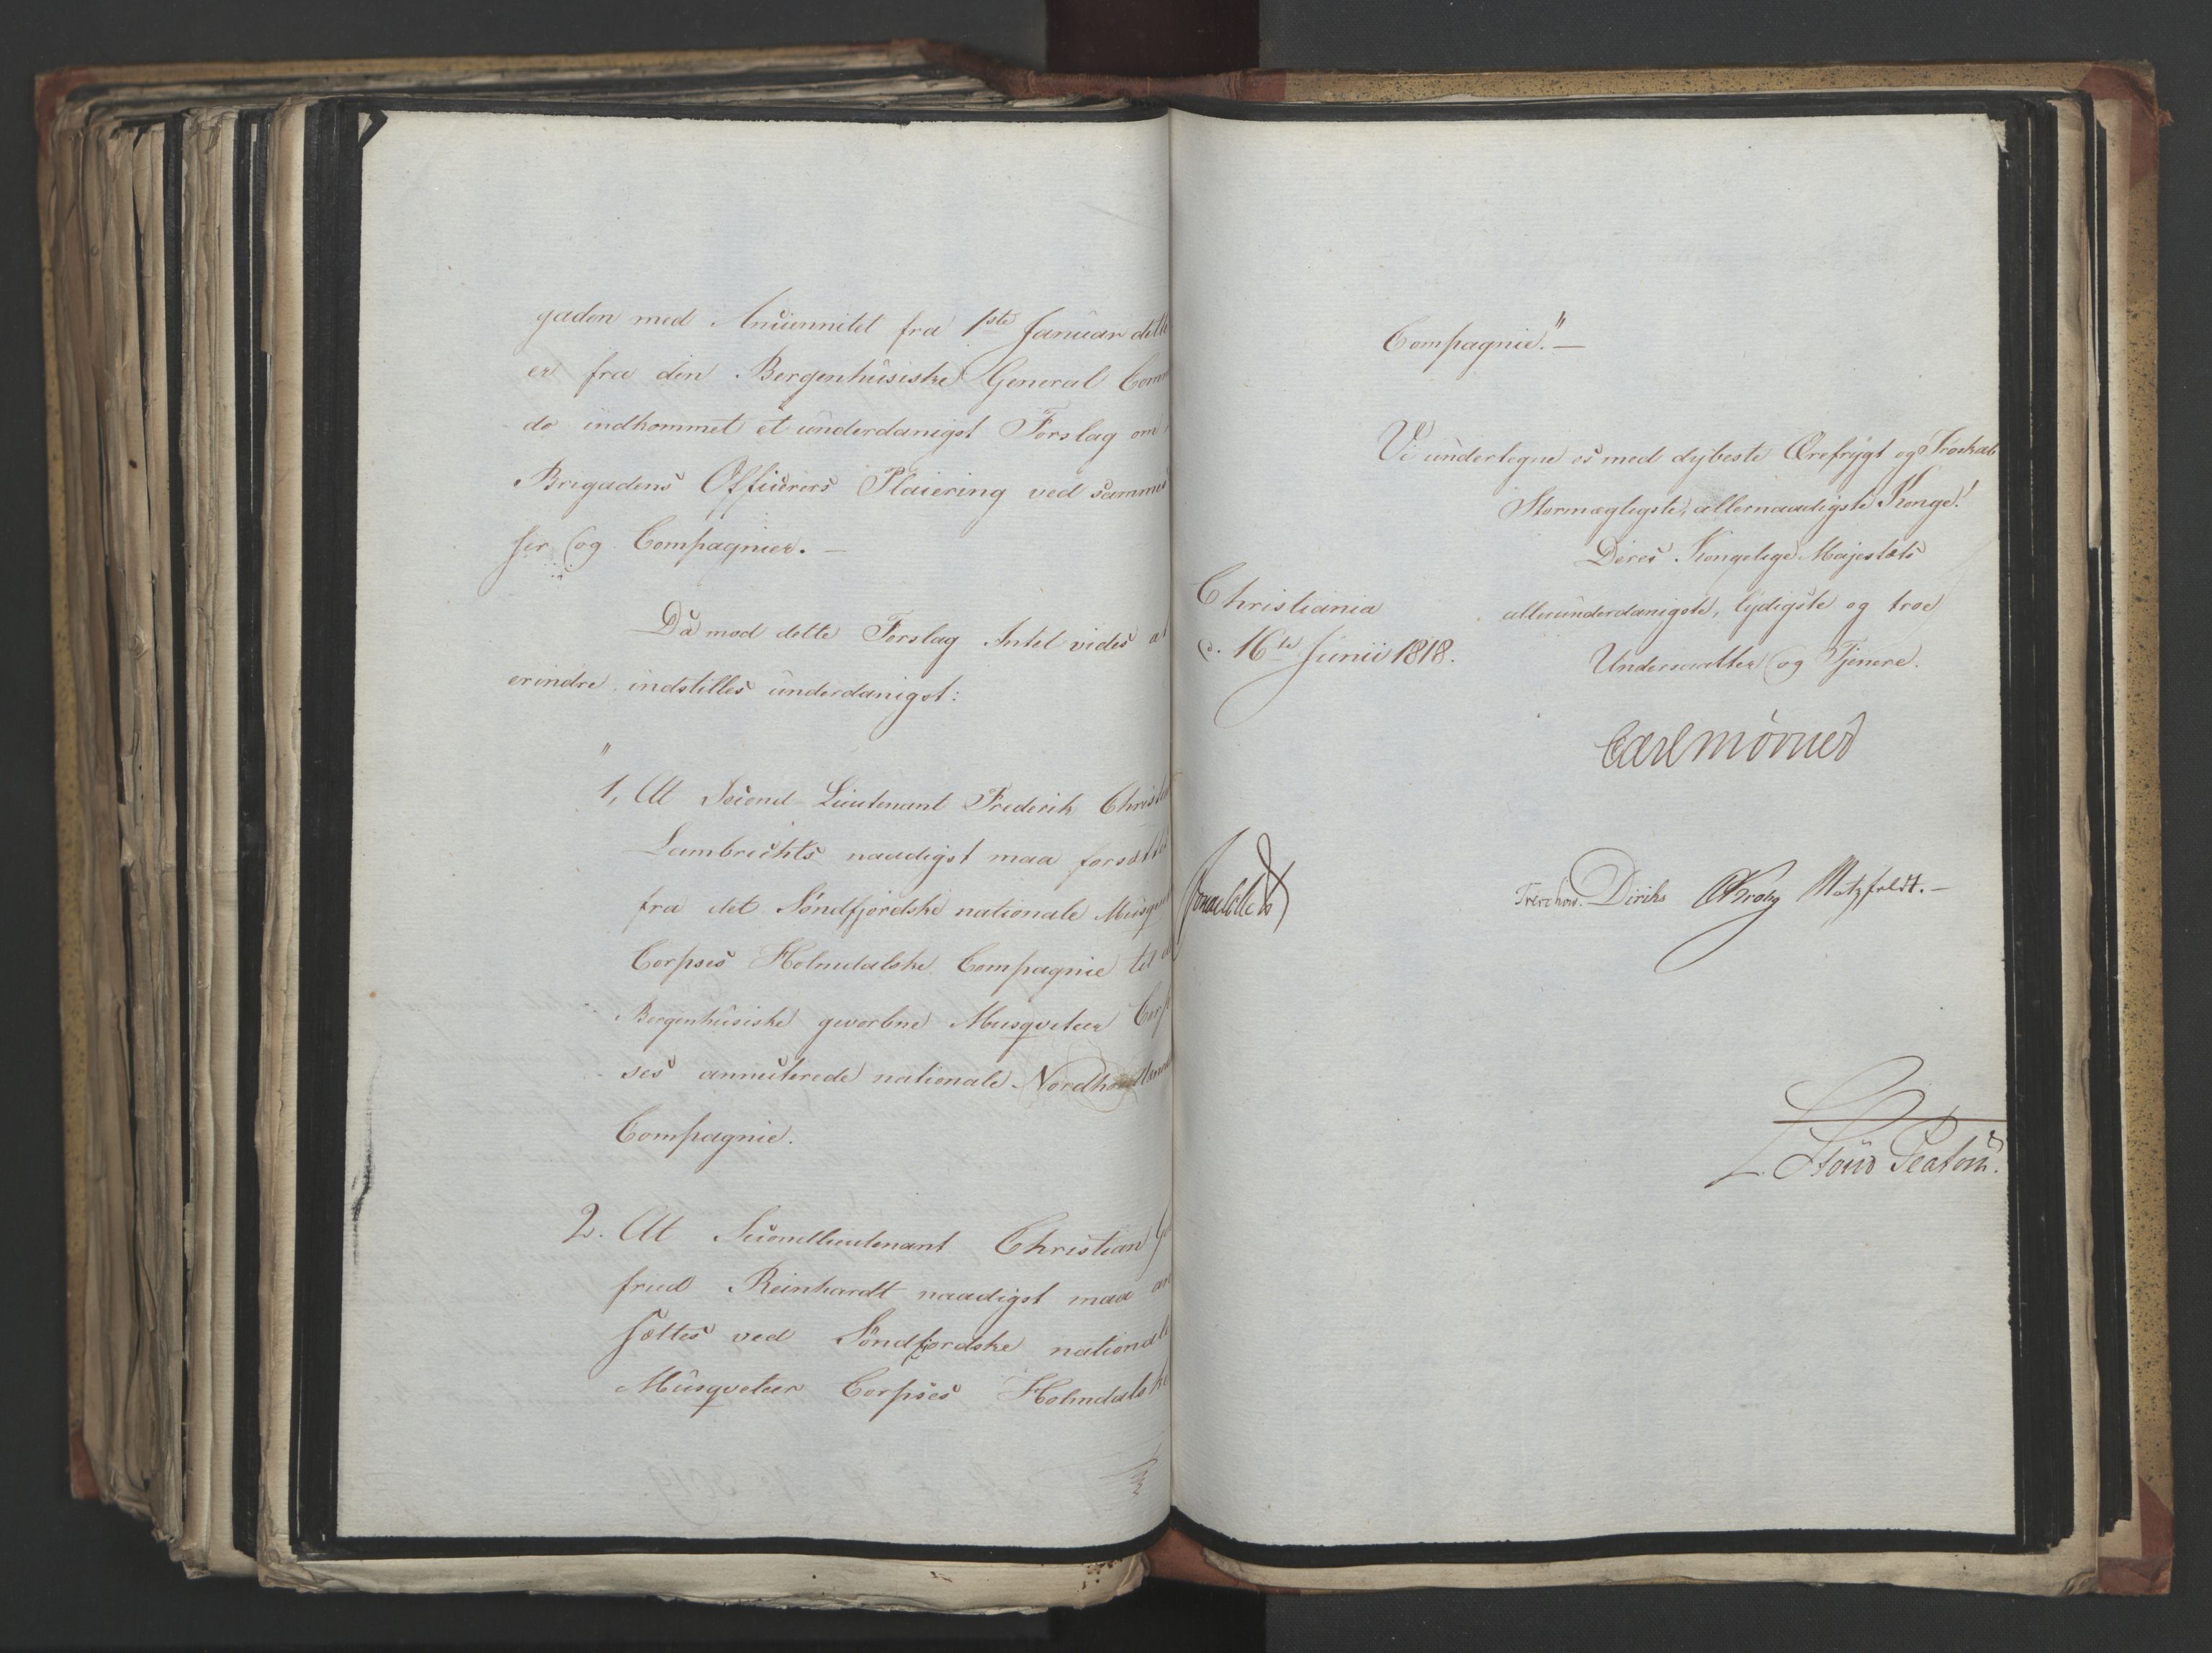 gaden med Anciennitet fra 1ste Januar dette
er fra den Bergenhusiske General Comm
do indkommet et underdanigst Forslag om
Brigadens Officierers Placiering ved sammes
ser og Compagnier. —
Da mod dette Forslag Intet vides at
erindre indstilles underdanigst:
"
1, At Second-Lieutenant Frederik Christ
Lambrechts naadigst maa forsættes
fra det Søndfjordske nationale Musquet
Corpses Holmedalske Compagnie til
Bergenhusiske gevorbne Musqveteer Corp
ses annecterede nationale Nordhordlands
Compagnie.
2. At Secondlieutenant Christian Go
fried Reinhardt naadigst maa an
sættes ved Søndfjordske nationale
Musqveteer Corpses Holmdalske
Compagnie." —
Vi undertegne os med dybeste Ærefrygt og Troskab
Stormægtigste, allernaadigste Konge!
Deres Kongelige Majestæts
Christiania
allerunderdanigste, lydigste og troe
d. 16de Junii 1818.
Undersaatter og Tjenere.
Carl Mörner
Treschow. Diriks Krog Motzfeldt. —